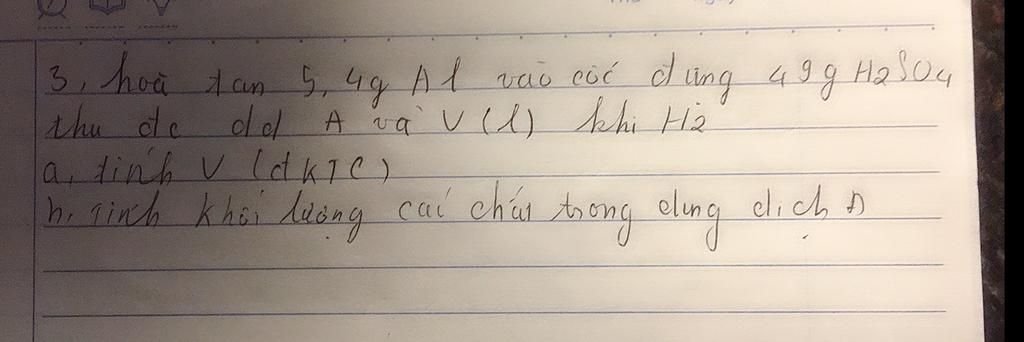 3, hoà tan 5,4g Al vào cốc đựng 49g H2SO4
thu đc dd A và V(l) khí H2
a, tính V (đKTC)
b, Tính khối lượng các chất trong dung dịch A